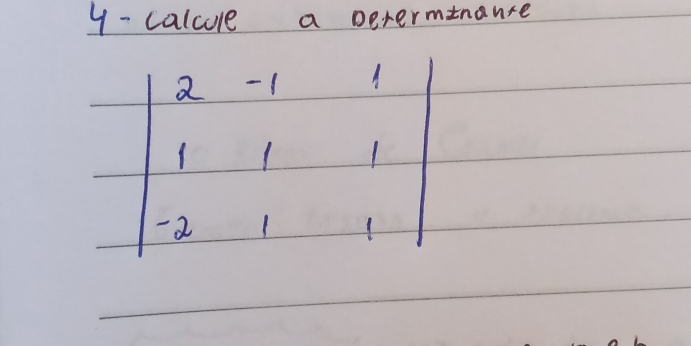 4 - calcule a Determinante
2 -1 1
1 1 1
-2 1 1